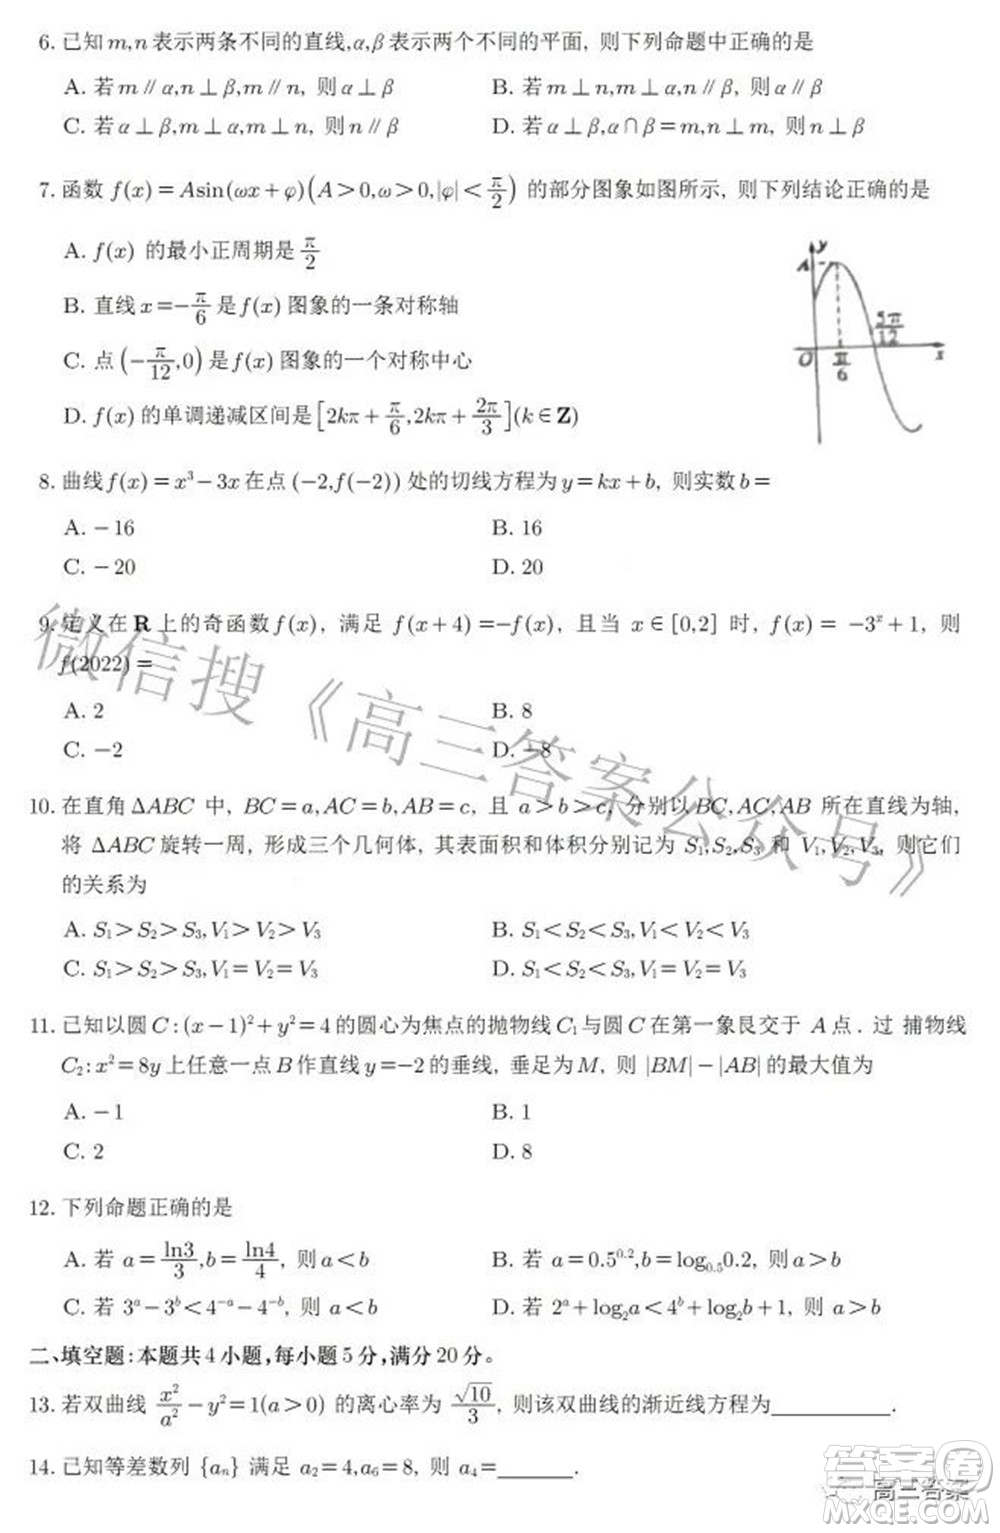 6. 已知 m,n 表示两条不同的直线,α,β 表示两个不同的平面, 则下列命题中正确的是
A. 若 m∥α,n⊥β,m∥n, 则 α⊥β
B. 若 m⊥n,m⊥α,n∥β, 则 α∥β
C. 若 α⊥β,m⊥α,m⊥n, 则 n∥β
D. 若 α⊥β,α∩β=m,n⊥m, 则 n⊥β
7. 函数 f(x)=Asin(ωx+φ)(A>0,ω>0,|φ|<π/2) 的部分图象如图所示, 则下列结论正确的是
A. f(x) 的最小正周期是 π/2
B. 直线 x=-π/6 是 f(x) 图象的一条对称轴
C. 点 (-π/12,0) 是 f(x) 图象的一个对称中心
D. f(x) 的单调递减区间是 [2kπ+π/6,2kπ+2π/3](k∈Z)
y
A
5π/12
O
π/6
x
8. 曲线 f(x)=x³-3x 在点 (-2,f(-2)) 处的切线方程为 y=kx+b, 则实数 b=
A. -16
B. 16
C. -20
D. 20
9. 定义在 R 上的奇函数 f(x), 满足 f(x+4)=-f(x), 且当 x∈[0,2] 时, f(x)=-3ˣ+1, 则
f(2022)=
A. 2
B. 8
C. -2
D. -8
10. 在直角 ΔABC 中, BC=a,AC=b,AB=c, 且 a>b>c, 分别以 BC,AC,AB 所在直线为轴,
将 ΔABC 旋转一周, 形成三个几何体, 其表面积和体积分别记为 S₁,S₂,S₃ 和 V₁,V₂,V₃, 则它们
的关系为
A. S₁>S₂>S₃,V₁>V₂>V₃
B. S₁<S₂<S₃,V₁<V₂<V₃
C. S₁>S₂>S₃,V₁=V₂=V₃
D. S₁<S₂<S₃,V₁=V₂=V₃
11. 已知以圆 C:(x-1)²+y²=4 的圆心为焦点的抛物线 C₁ 与圆 C 在第一象艮交于 A 点. 过 捕物线
C₂:x²=8y 上任意一点 B 作直线 y=-2 的垂线, 垂足为 M, 则 |BM|-|AB| 的最大值为
A. -1
B. 1
C. 2
D. 8
12. 下列命题正确的是
A. 若 a=ln3/3,b=ln4/4, 则 a<b
B. 若 a=0.5^0.2,b=log₀.₅0.2, 则 a>b
C. 若 3ᵃ-3ᵇ<4⁻ᵃ-4⁻ᵇ, 则 a<b
D. 若 2ᵃ+log₂a<4ᵇ+log₂b+1, 则 a>b
二、填空题:本题共 4 小题,每小题 5 分,满分 20 分。
13. 若双曲线 x²/a²-y²=1(a>0) 的离心率为 √10/3, 则该双曲线的渐近线方程为________.
14. 已知等差数列 {aₙ} 满足 a₂=4,a₆=8, 则 a₄=______.
微信搜《高三答案公众号》
答案圈
高三答案
MXQE.COM